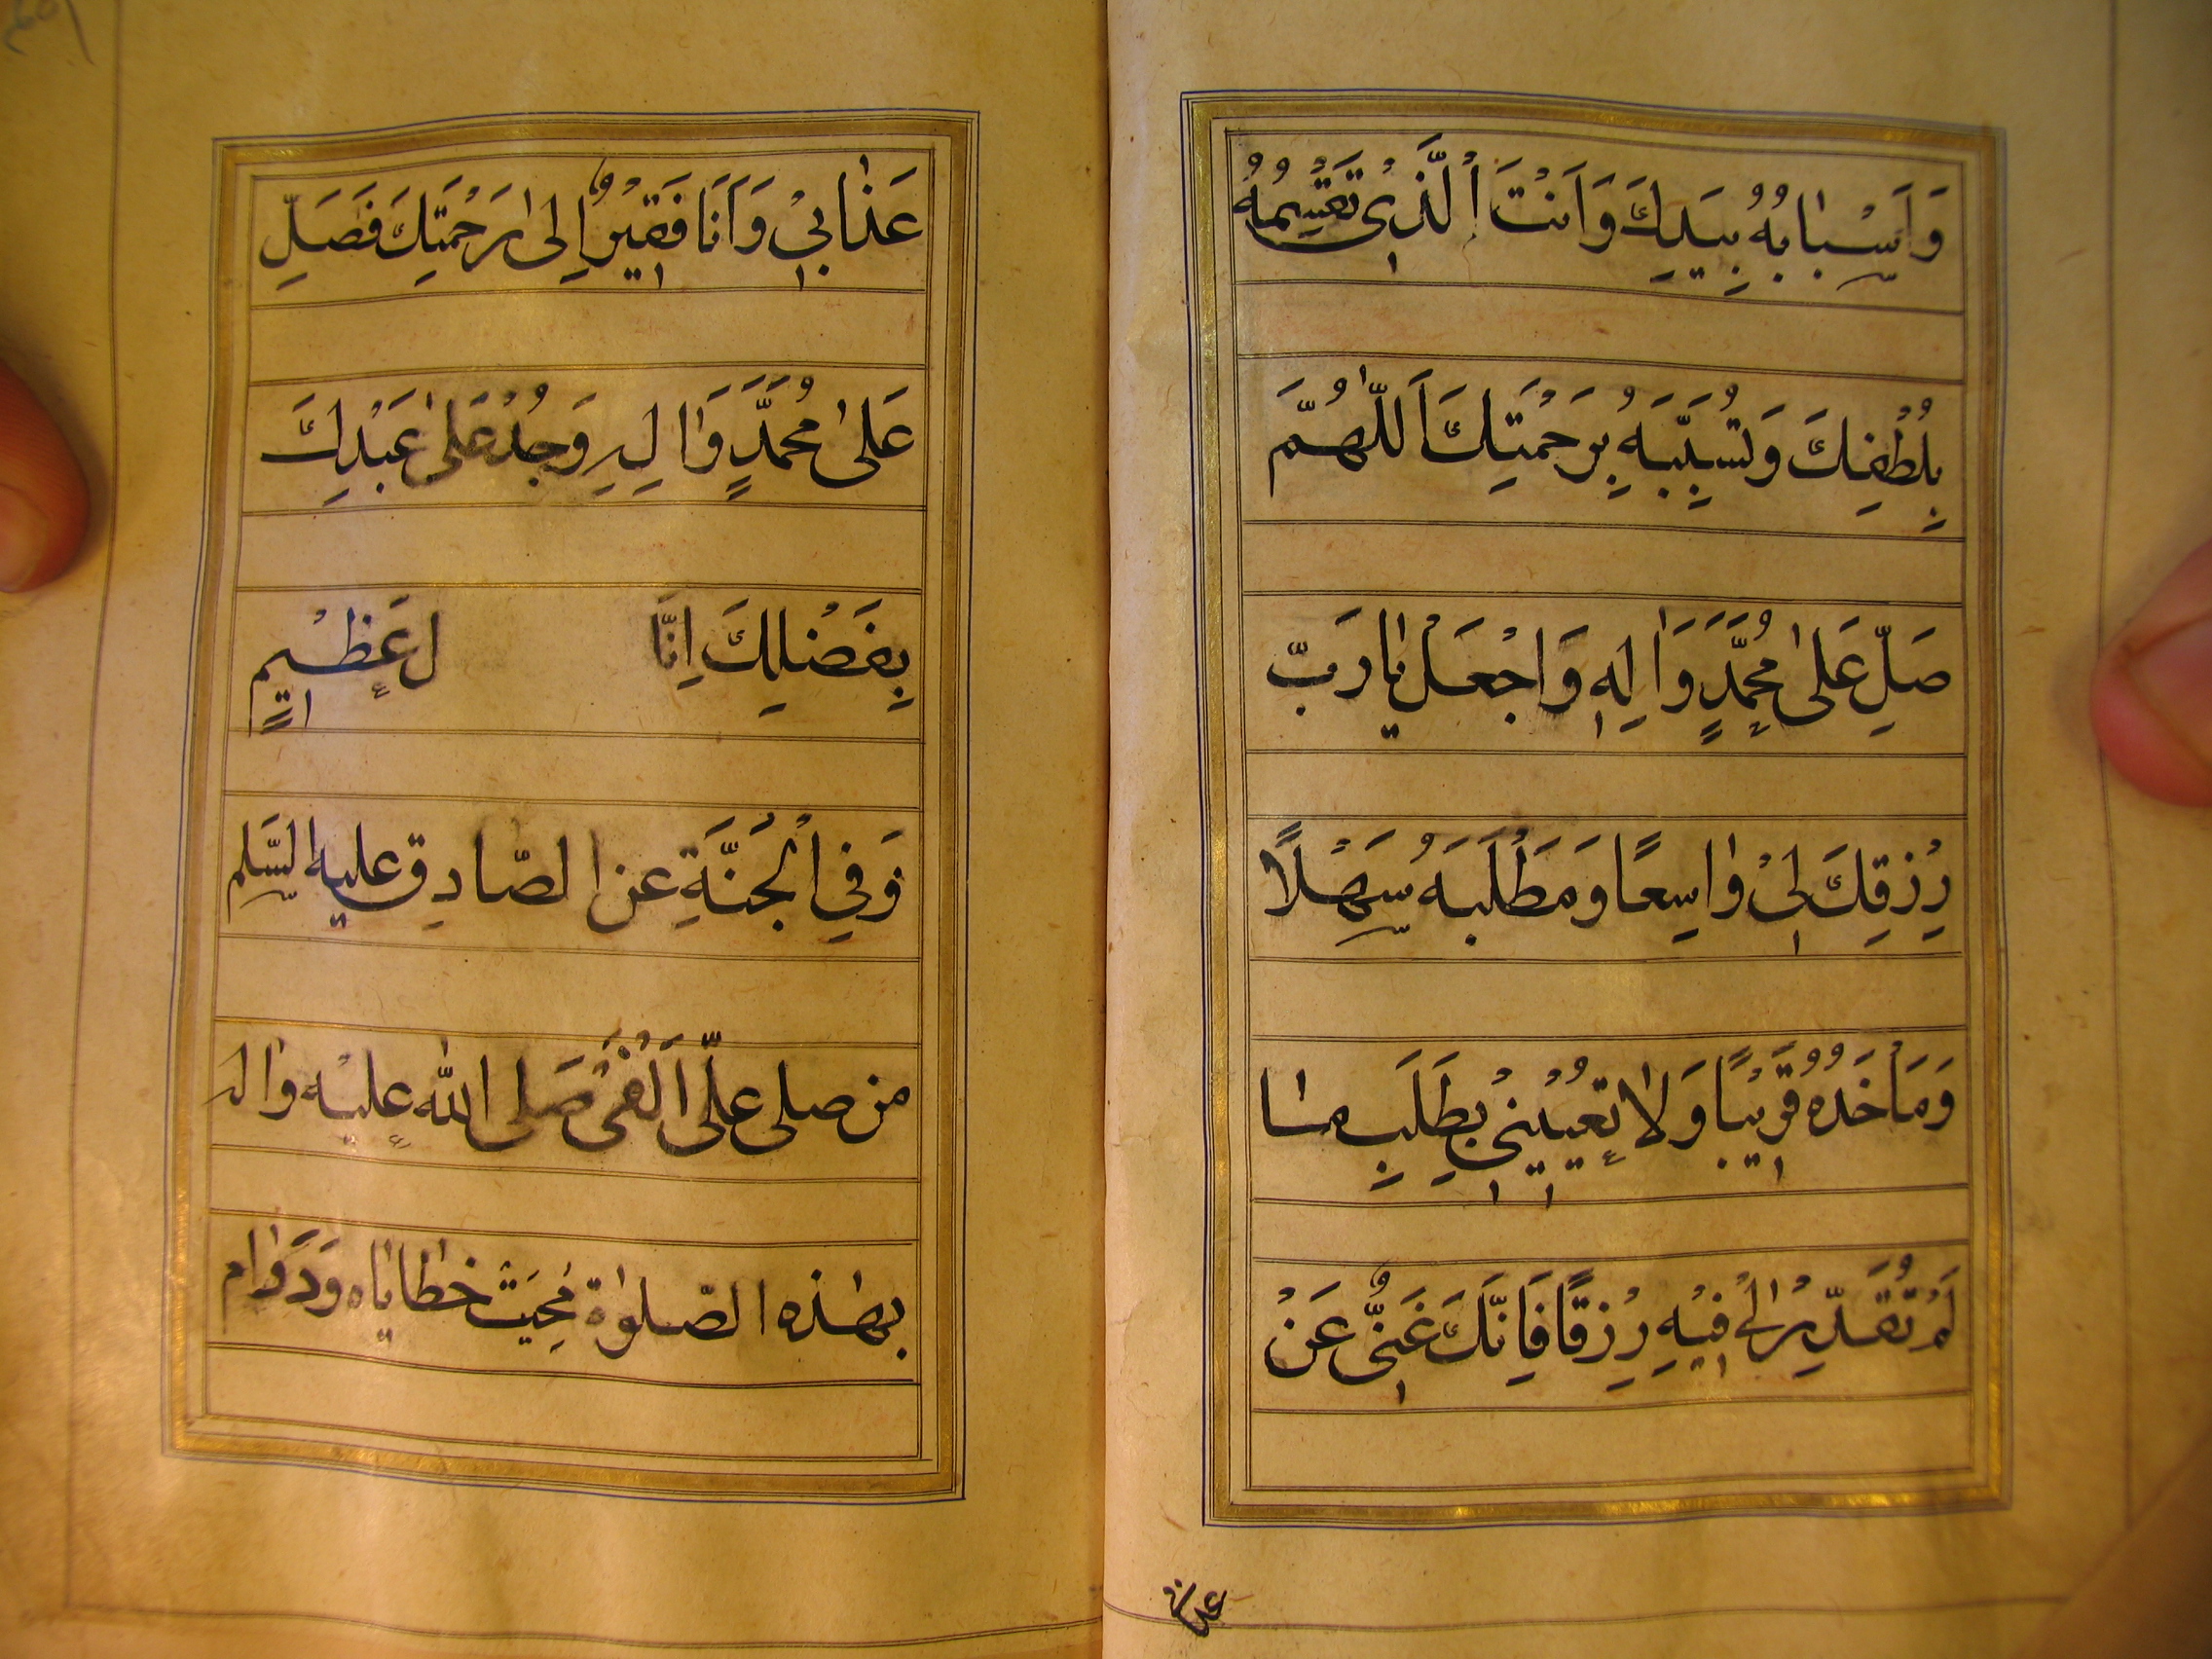 وَاَسْبٰابُهُ بِيَدِكَ وَاَنْتَ الَّذِیْ تَقْسِمُهُ
بِلُطْفِكَ وَتُسَبِّبَهُ بِرَحْمَتِكَ اَللّٰهُمَّ
صَلِّ عَلىٰ مُحَمَّدٍ وَاٰلِهِ وَاجْعَلْ يٰا رَبِّ
رِزْقِكَ لِیْ وٰاسِعًا وَمَطْلَبَهُ سَهْلًا
وَمَأخَذُهُ قَرِيْبًا وَلٰا تُعَيِّنِيْ بِطَلَبِ مٰا
لَمْ تُقَدِّرْ لِیْ فِيْهِ رِزْقًا فَاِنَّكَ غَنِیٌّ عَنْ
عذابی
عَذٰابِیْ وَاَنَا فَقِيْرٌ اِلىٰ رَحْمَتِكَ فَصَلِّ
عَلىٰ مُحَمَّدٍ وَاٰلِهِ وَجُدْ عَلىٰ عَبْدِكَ
بِفَضْلِكَ اِنَّا ل عَظِيْمٍ
وَفِي الْجُنَّةِ عن الصّادِق عليه السَّلم
من صلى علیّ النَّبی صَلى الله عليه واله
بهٰذه الصّلوٰة مُحِيَتْ خطاياه وَدَوٰام